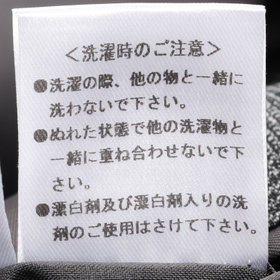 ＜洗濯時のご注意＞
●洗濯の際、他の物と一緒に
洗わないで下さい。
●ぬれた状態で他の洗濯物と
一緒に重ね合わせないで下
さい。
●漂白剤及び漂白剤入りの洗
剤のご使用はさけて下さい。